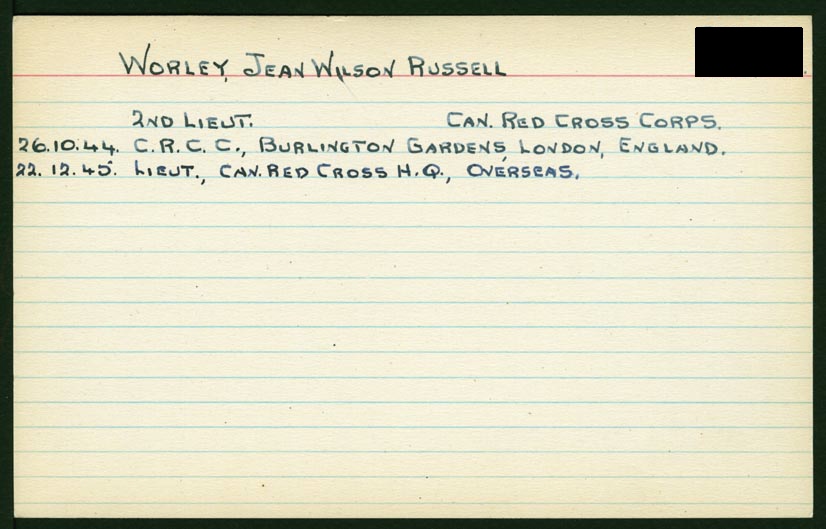 WORLEY, JEAN WILSON RUSSELL
2ND LIEUT. CAN. RED CROSS CORPS.
26.10.44. C.R.C.C., BURLINGTON GARDENS, LONDON, ENGLAND.
22.12.45. LIEUT., CAN. RED CROSS H.Q., OVERSEAS.